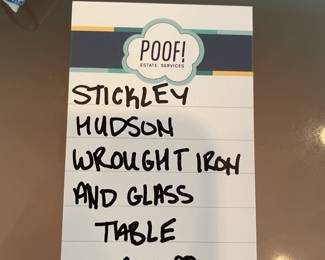 POOF!
ESTATE SERVICES
STICKLEY
HUDSON
WROUGHT IRON
AND GLASS
TABLE